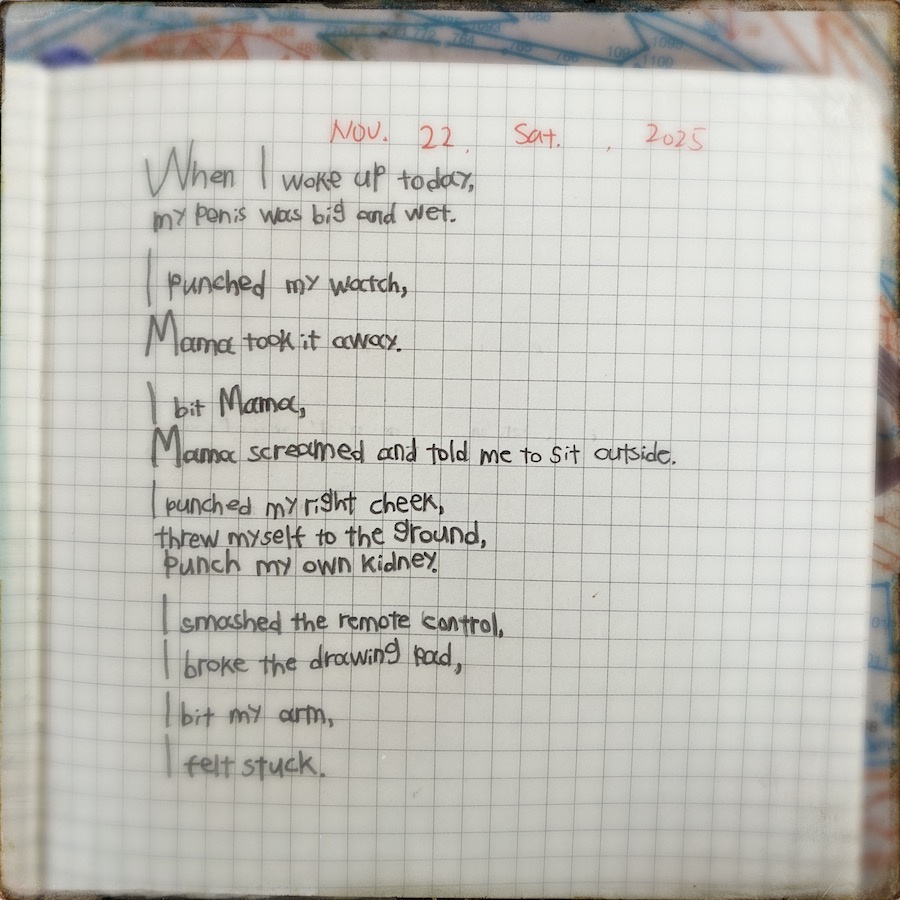 NOV. 22, Sat. , 2025
When I woke up today,
my penis was big and wet.
I punched my watch,
Mama took it away.
I bit Mama,
Mama screamed and told me to sit outside.
I punched my right cheek,
threw myself to the ground,
punch my own kidney.
I smashed the remote control,
I broke the drawing pad,
I bit my arm,
I felt stuck.